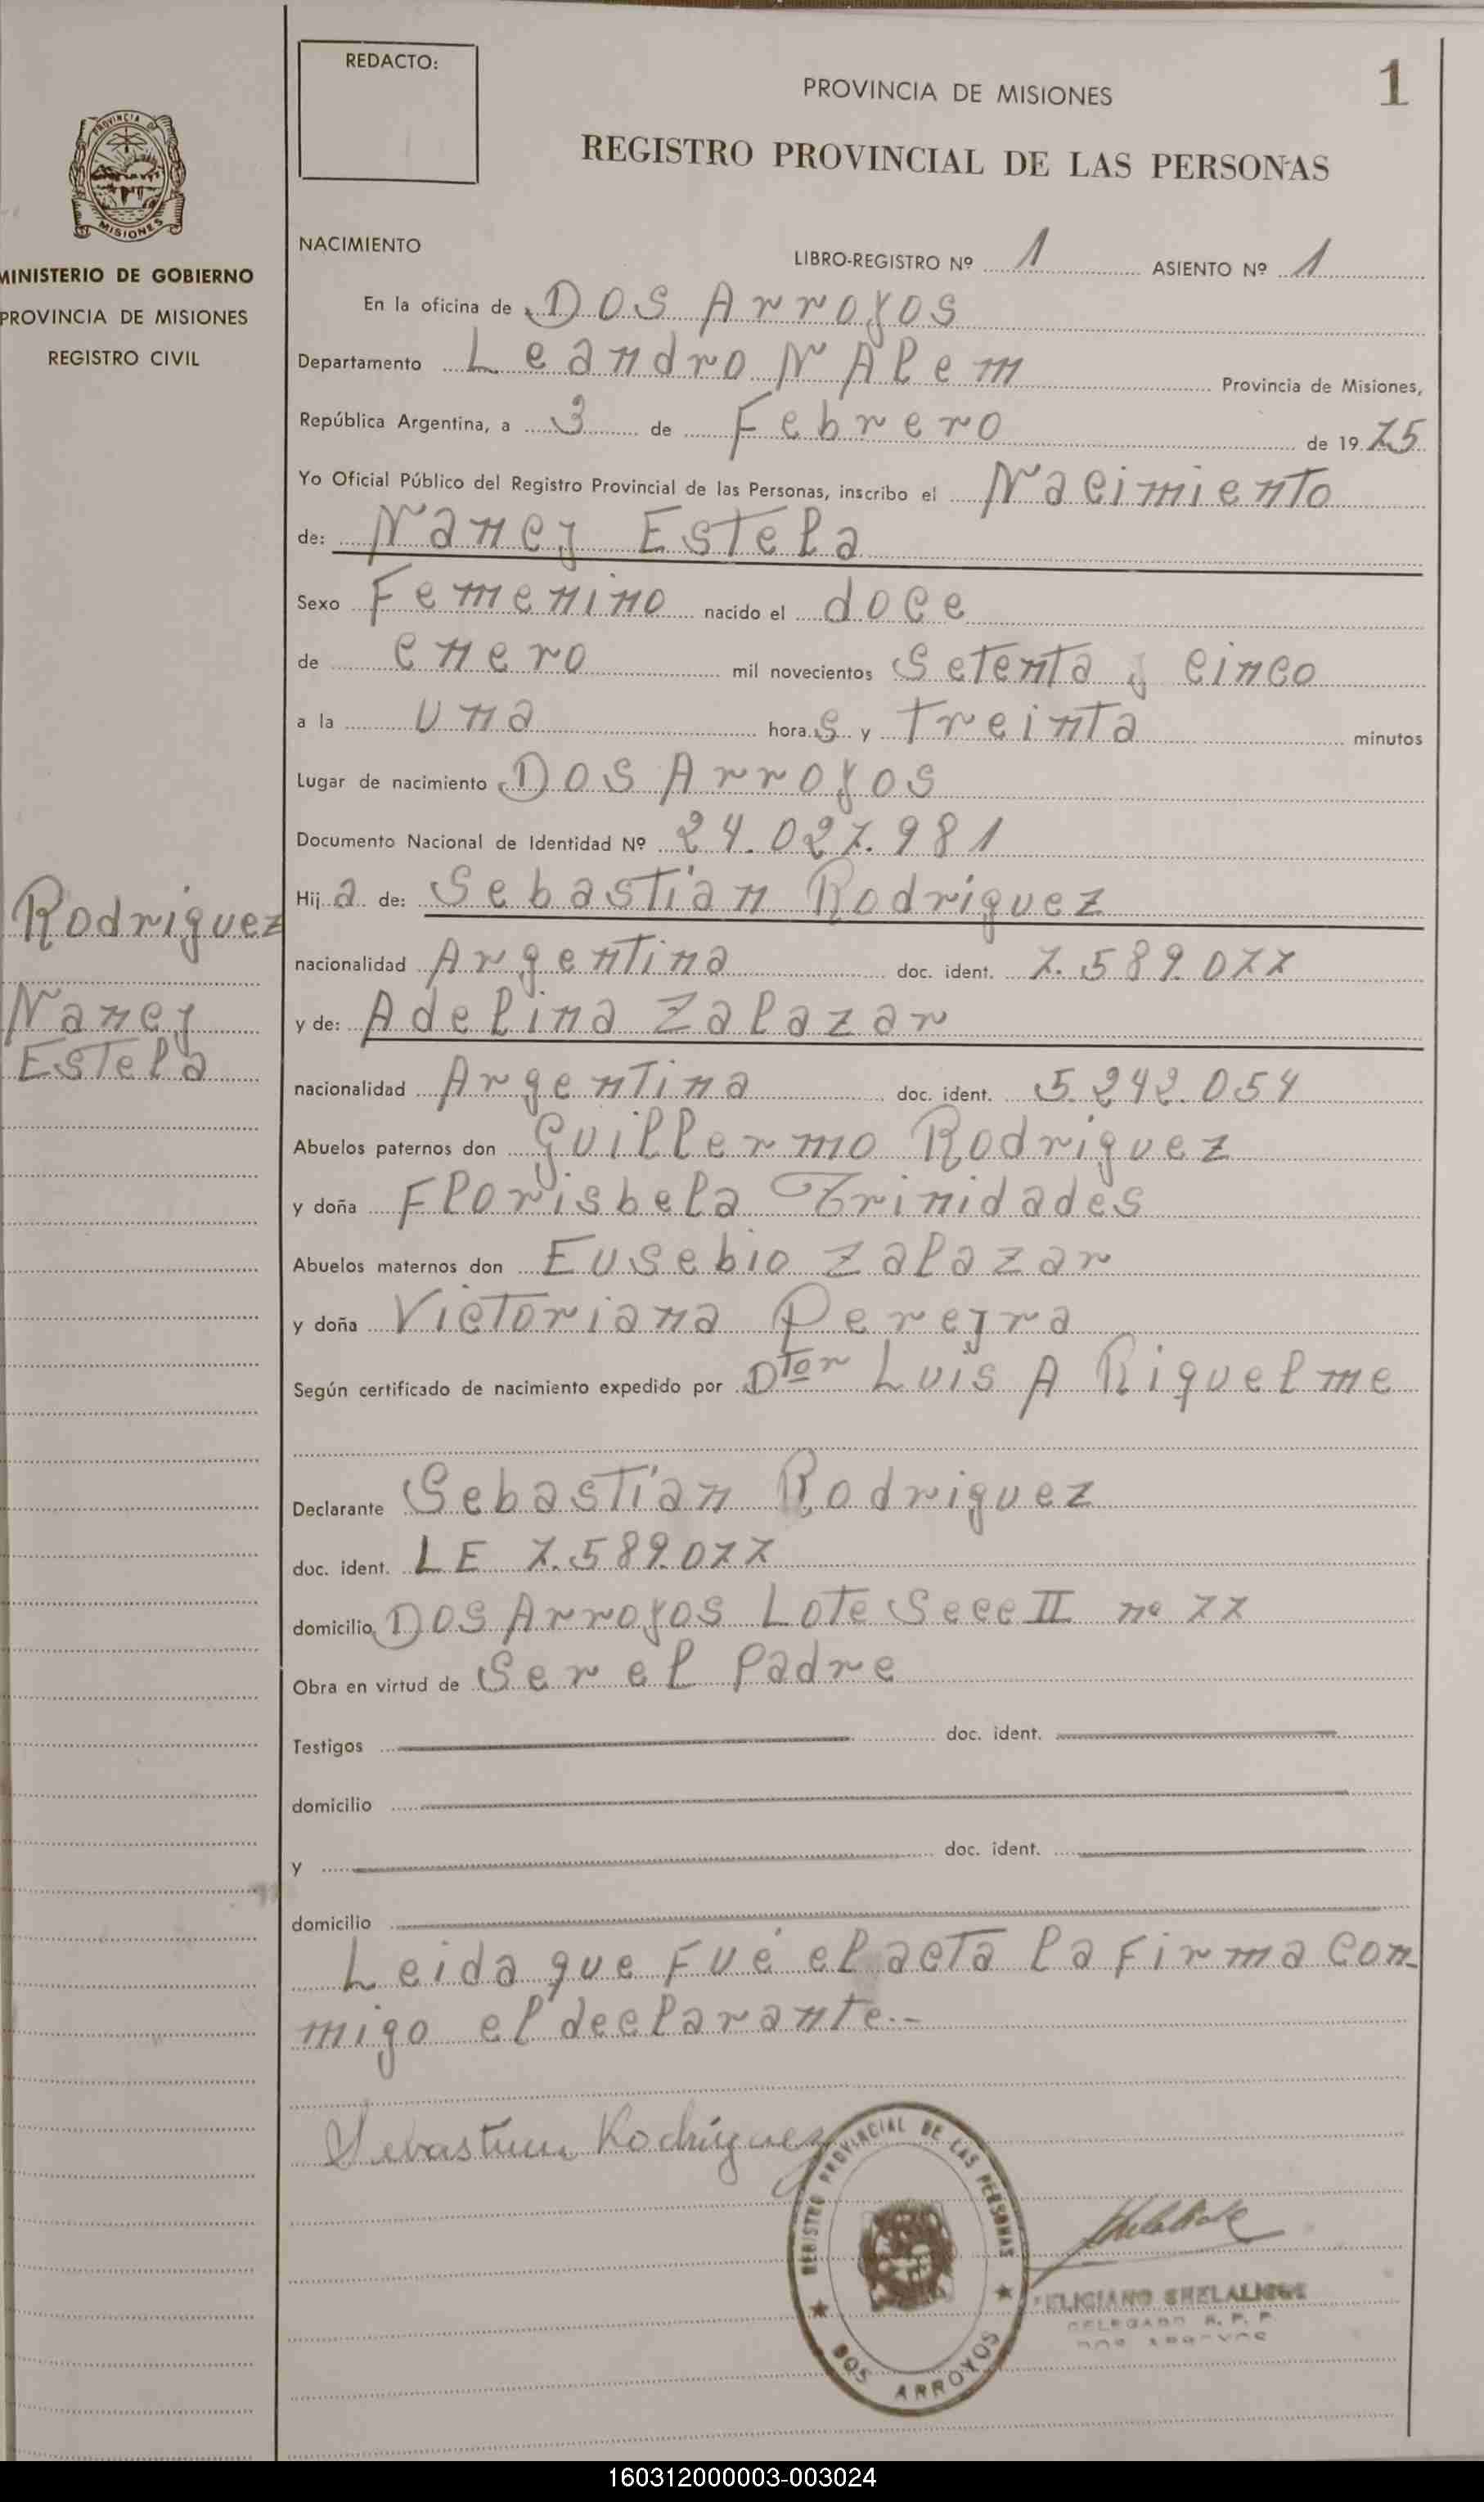 REDACTO:
PROVINCIA DE MISIONES
1
REGISTRO PROVINCIAL DE LAS PERSONAS
PROVINCIA DE MISIONES
MINISTERIO DE GOBIERNO
PROVINCIA DE MISIONES
REGISTRO CIVIL
NACIMIENTO
LIBRO-REGISTRO Nº 1 ASIENTO Nº 1
En la oficina de Dos Arroyos
Departamento Leandro N Alem Provincia de Misiones,
República Argentina, a 3 de Febrero de 1975
Yo Oficial Público del Registro Provincial de las Personas, inscribo el Nacimiento
de: Nancy Estela
Sexo Femenino nacido el doce
de enero mil novecientos Setenta y cinco
a la una horas y treinta minutos
Lugar de nacimiento Dos Arroyos
Documento Nacional de Identidad Nº 24.027.981
Hija de: Sebastián Rodriguez
nacionalidad Argentina doc. ident. 7.589.077
y de: Adelina Zalazar
nacionalidad Argentina doc. ident. 5.242.054
Rodriguez
Nancy
Estela
Abuelos paternos don Guillermo Rodriguez
y doña Florisbela Trinidades
Abuelos maternos don Eusebio Zalazar
y doña Victoriana Pereyra
Según certificado de nacimiento expedido por Dtor Luis A Riquelme
Declarante Sebastián Rodriguez
doc. ident. LE 7.589.077
domicilio Dos Arroyos Lote Secc II nº 77
Obra en virtud de Ser el Padre
Testigos doc. ident.
domicilio
y doc. ident.
domicilio
Leida que fué el acta la firma con
migo el declarante.-
Sebastian Rodríguez
REGISTRO PROVINCIAL DE LAS PERSONAS
DOS ARROYOS
DELEGADO R. P. P.
DOS ARROYOS
160312000003-003024